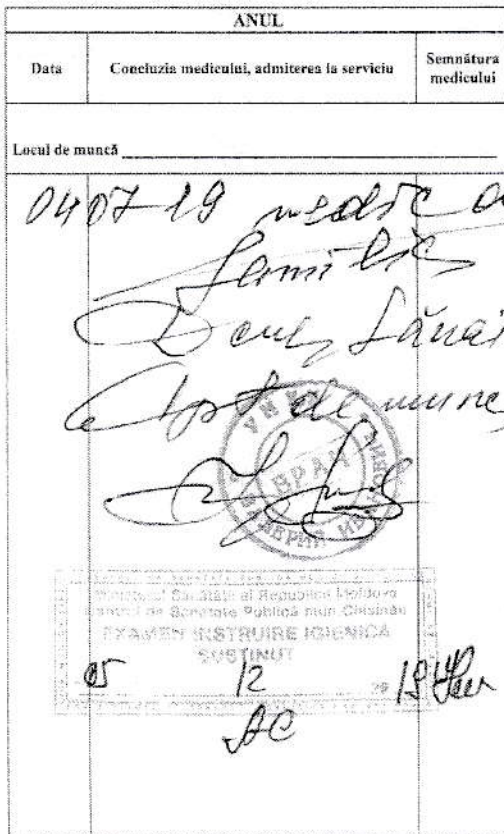 ANUL
Data
Concluzia medicului, admiterea la serviciu
Semnătura medicului
Locul de muncă
04 07 19 medic
familie
Apt de munc
ВРАЧ
ВАЛЕРИЙ
Ministerul Sănătății al Republicii Moldova
Centrul de Sănătate Publică mun Chișinău
EXAMEN INSTRUIRE IGIENICĂ
SUSȚINUT
05 12 19
AC